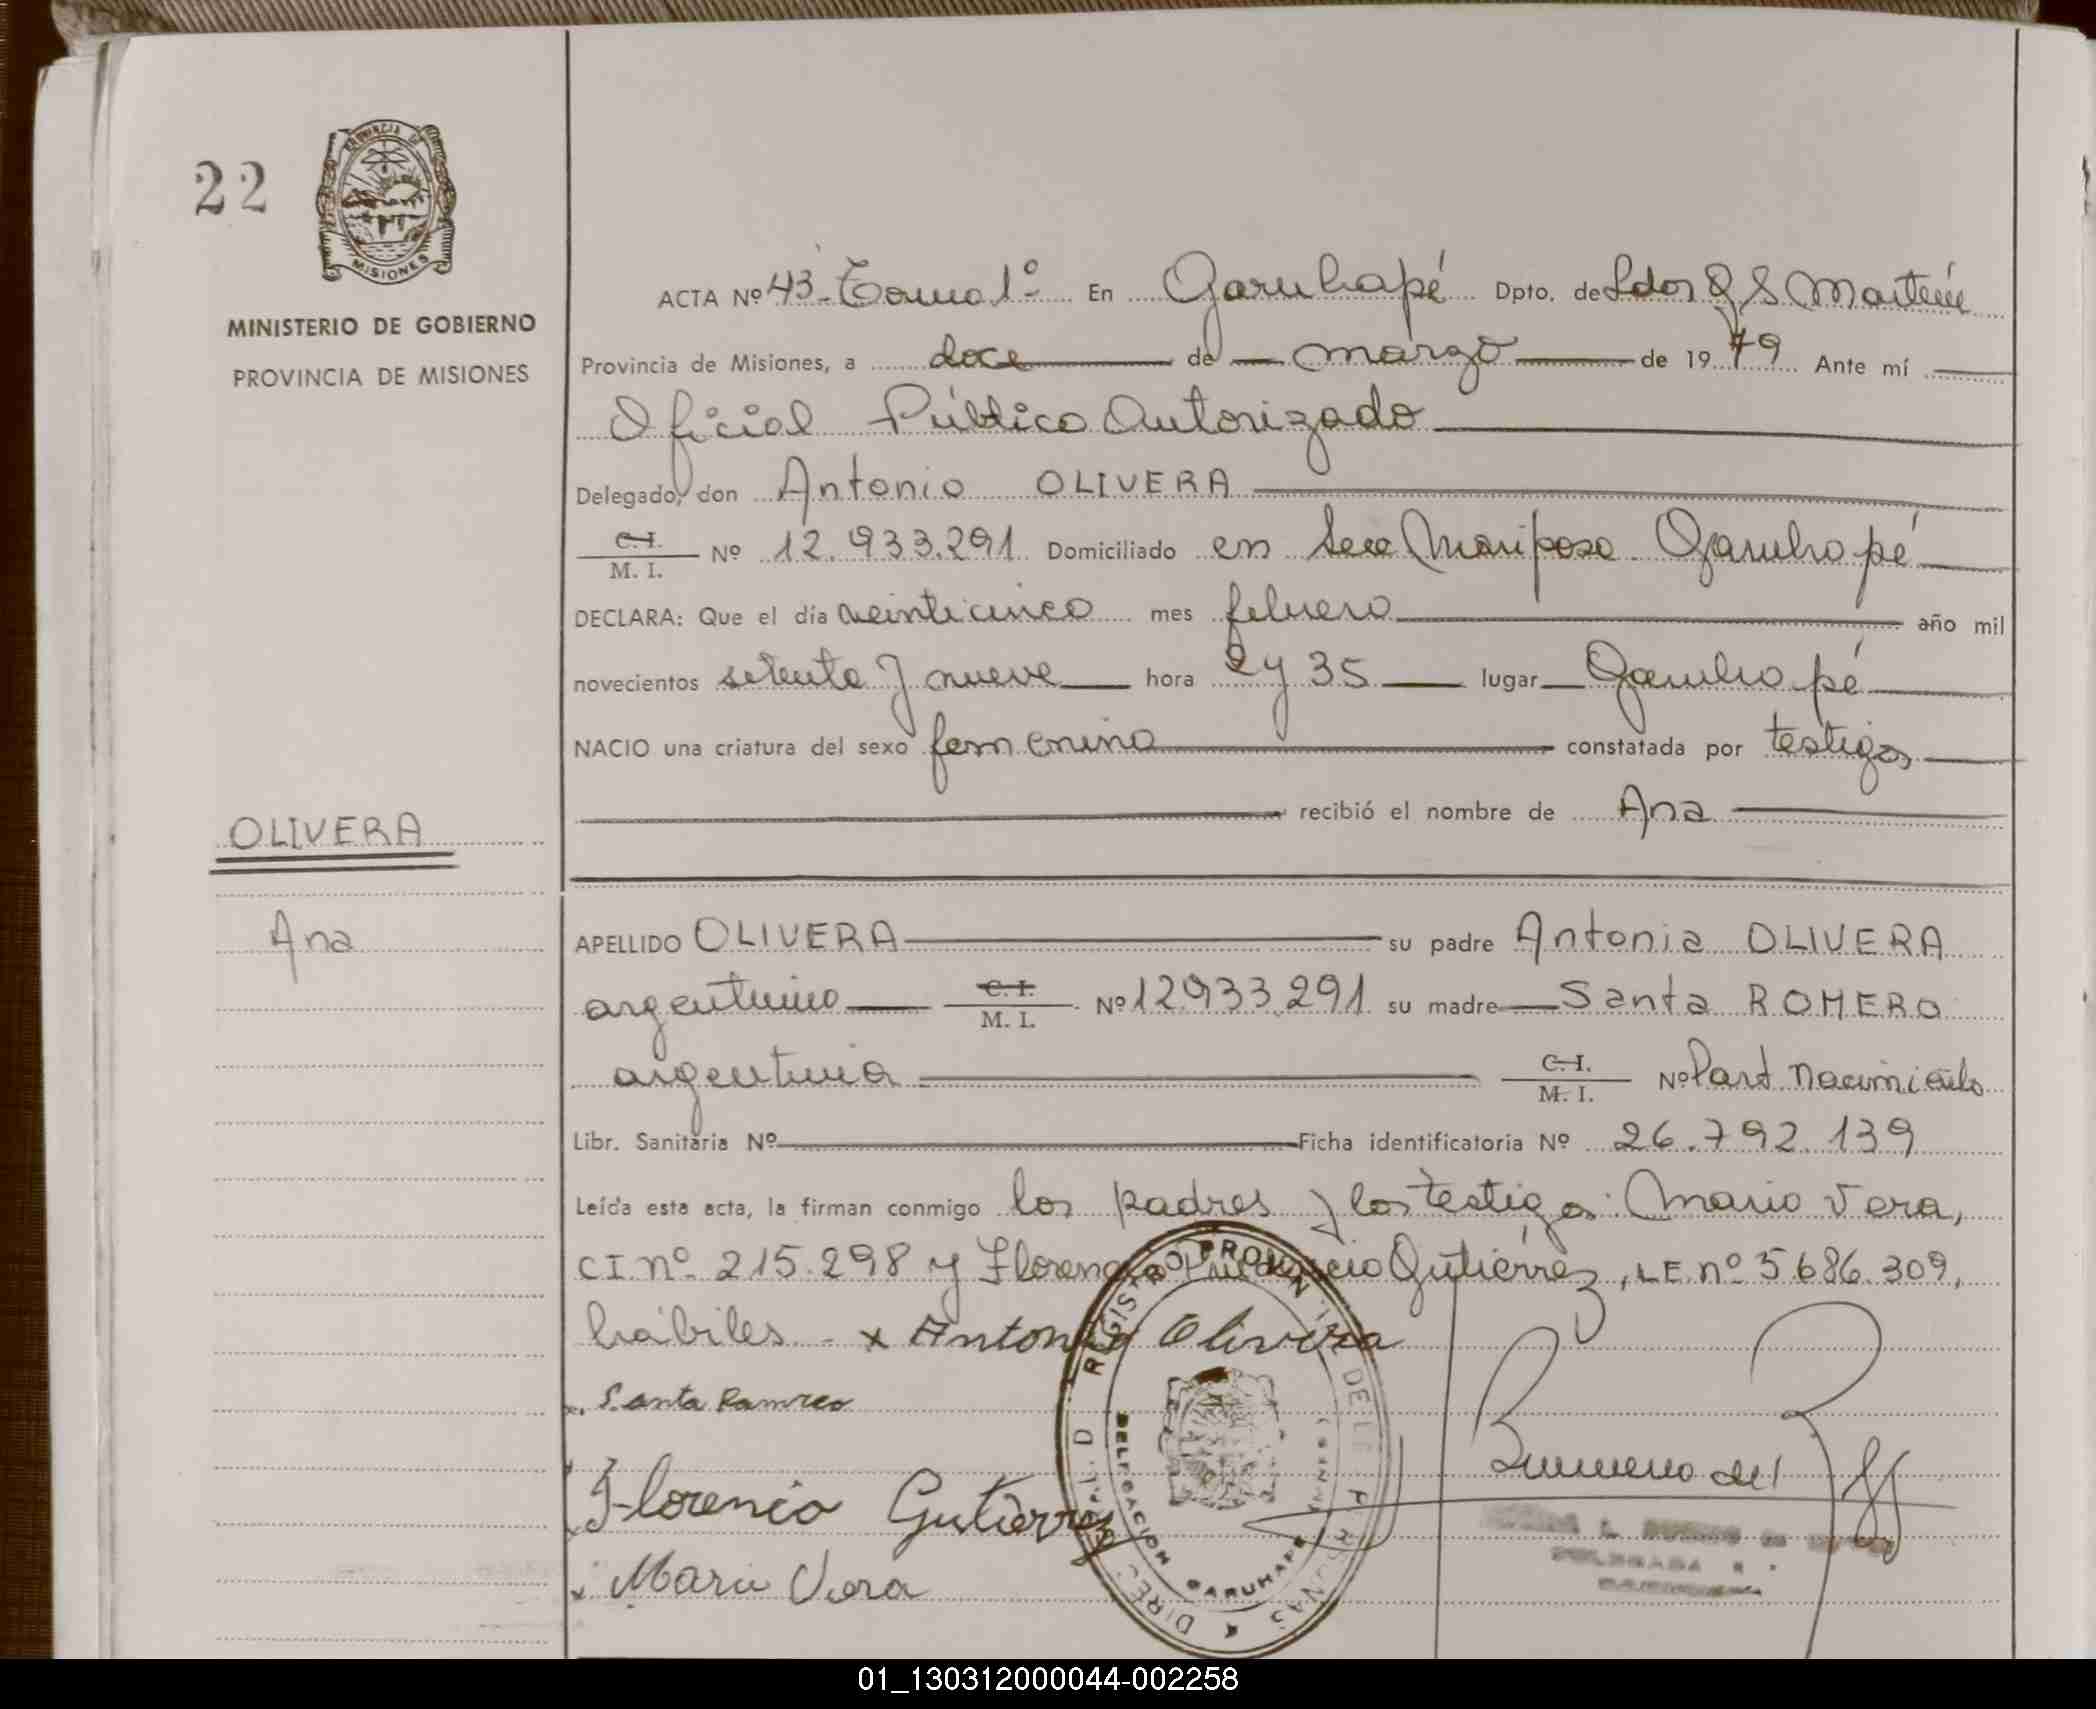 22
PROVINCIA DE
MISIONES
MINISTERIO DE GOBIERNO
PROVINCIA DE MISIONES
ACTA Nº 43 - Tomo 1º En Garuhapé Dpto. de Ldor G S Martín
Provincia de Misiones, a doce de marzo de 1979 Ante mí
Oficial Público Autorizado
Delegado, don Antonio OLIVERA
C.I.
M. I. Nº 12.933.291 Domiciliado en Mariposa Garuhapé
DECLARA: Que el día veinticinco mes febrero año mil
novecientos setenta y nueve hora 2 y 35 lugar Garuhapé
NACIO una criatura del sexo femenino constatada por testigos
recibió el nombre de Ana
OLIVERA
Ana
APELLIDO OLIVERA su padre Antonio OLIVERA
argentino C.I. M. I. Nº 12.933.291 su madre Santa ROMERO
argentina C.I. M. I. Nº Part Nacimiento
Libr. Sanitaria Nº Ficha identificatoria Nº 26.792.139
Leída esta acta, la firman conmigo los padres y los testigos: Mario Vera,
CI. nº 215.298 y Florencio Gutiérrez, LE. nº 5686.309,
hábiles. x Antonio Olivera
x. Santa
Florencio Gutierrez
x Mario Vera
DELEGACION GARUHAPE
DELEGADA
01_130312000044-002258